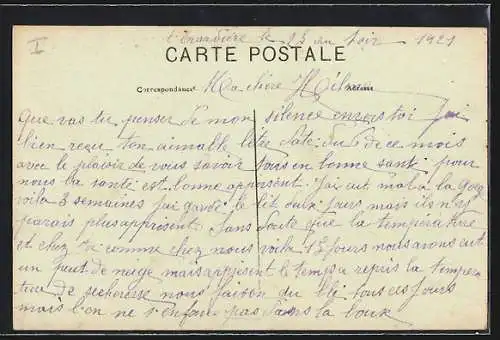 le 23 au soir 1921
I
CARTE POSTALE
Correspondance Ma chère
que vas tu penser de mon silence envers toi J'ai
bien reçu ton aimable lètre daté du 6 de ce mois
avec le plaisir de vous savoir tous en bonne santé pour
nous la santé est bonne apprisent. J'ai eut mal a la
voila 3 semaines j'ai gardé le lit deux jours mais il n'y
parais plus apprisent. Sans doute que la température
et chez toi comme chez nous voila 15 jours nous avons eut
un peut de neige mais apprisent le temps a repris la temper
ture de secheresse nous faison du blé tous ces jours
mais l'on ne s'enfonce pas dans la boue